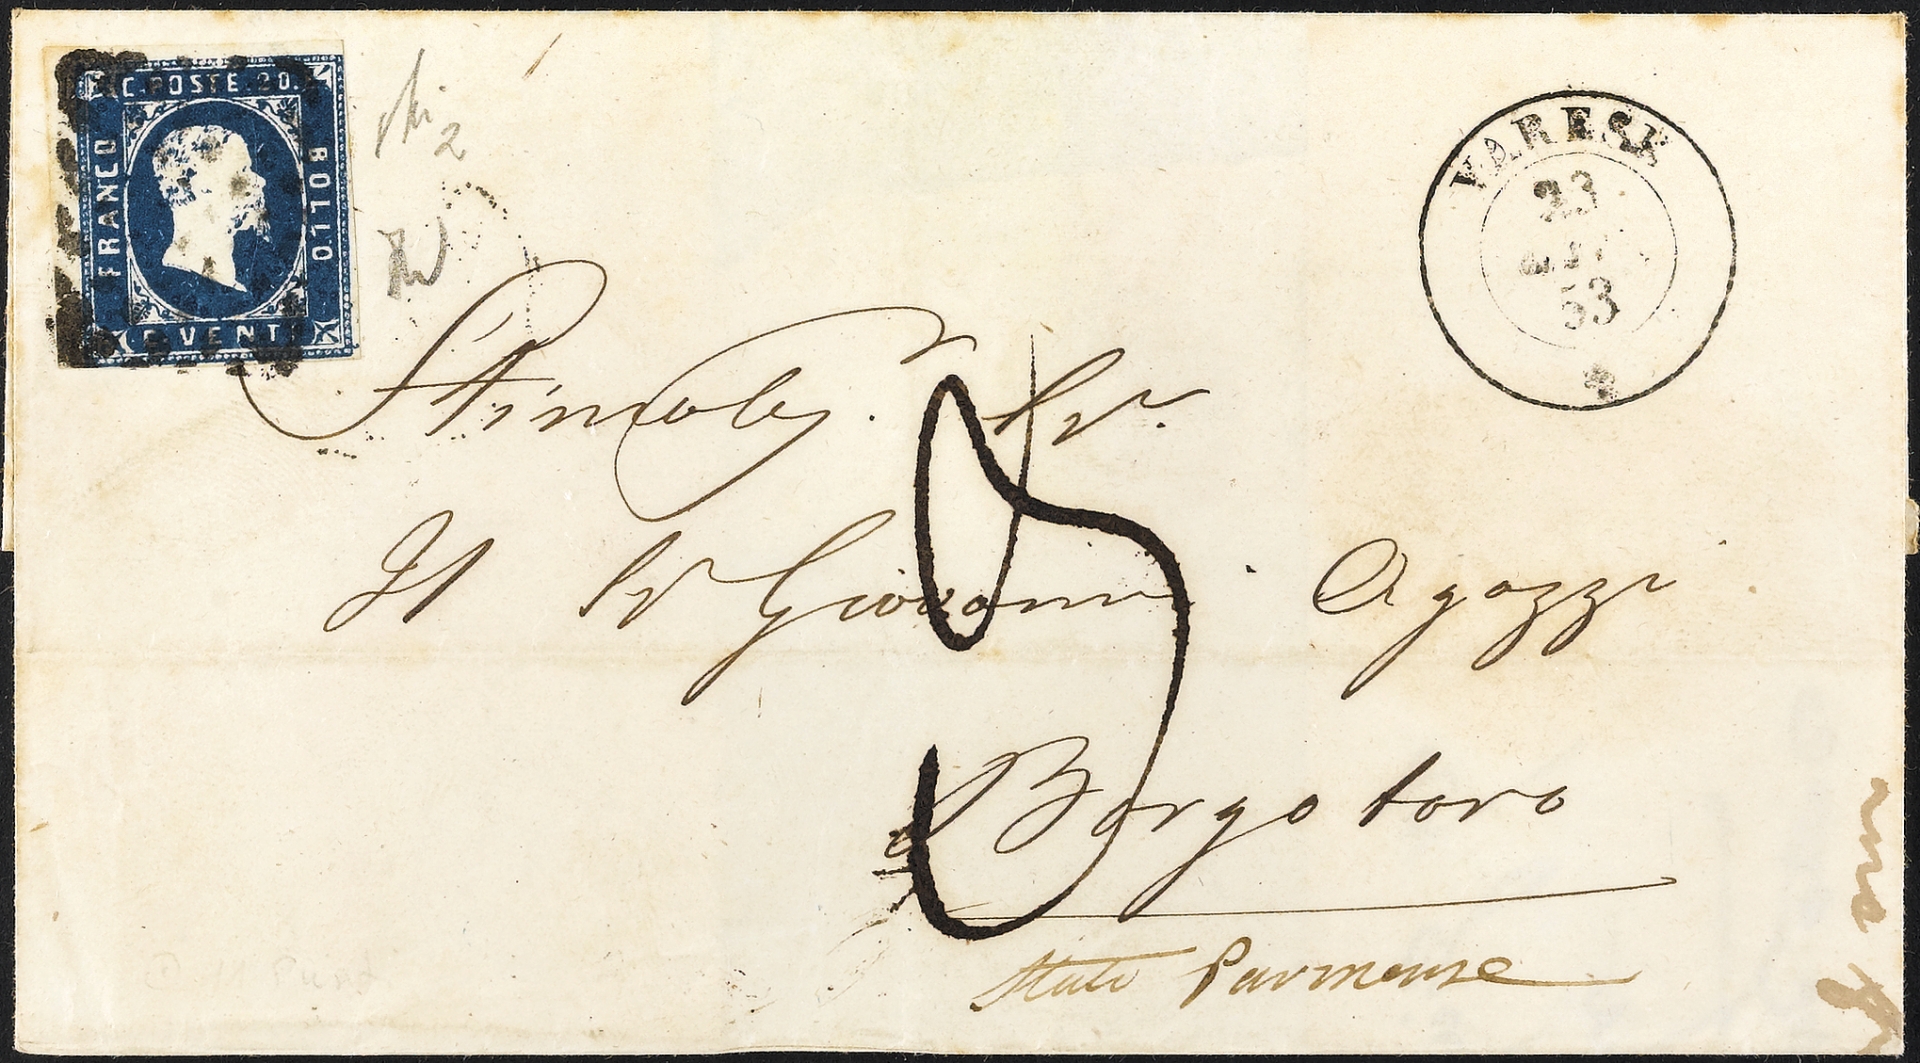 C.POSTE.20.
FRANCO
BOLLO
C.VENTI
2
VARESE
23
53
Stimabs. Sr.
Il Sr Giovanni Agazzi
5
Borgotaro
Stato Parmense